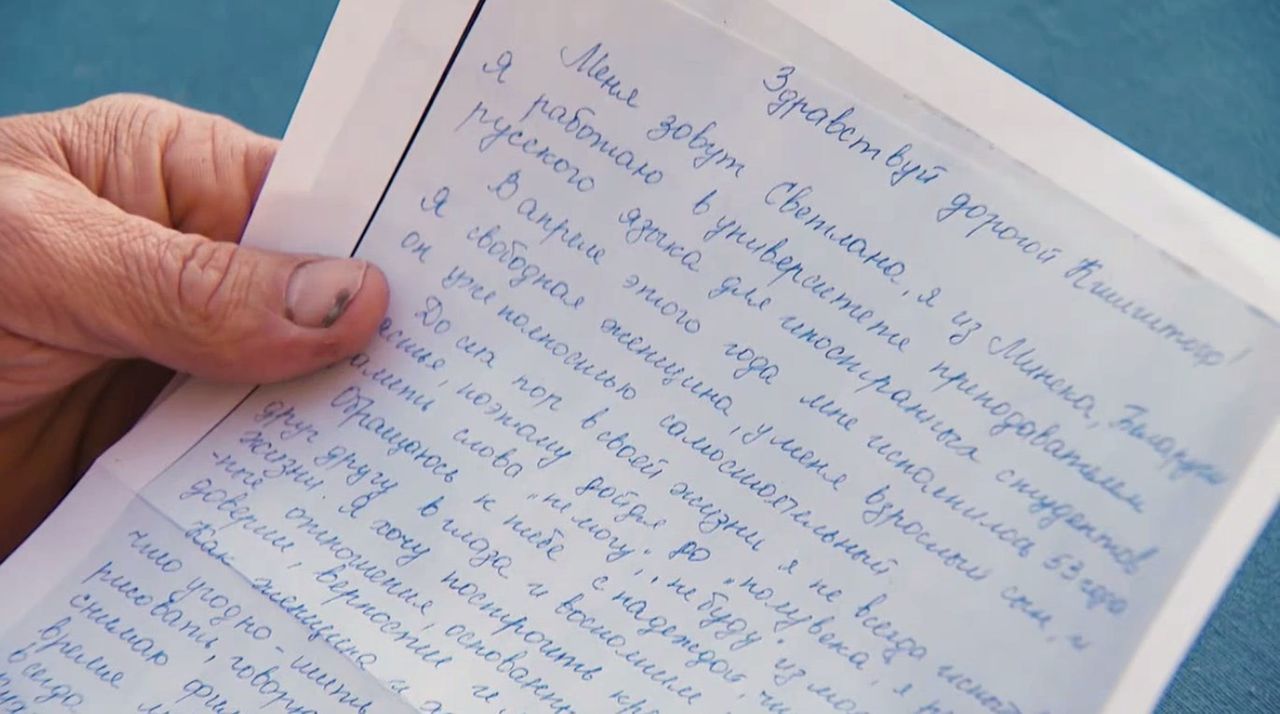 Здравствуй дорогой Кшиштоф!
Меня зовут Светлана, я из Минска, Беларуси
Я работаю в университете преподавателем
русского языка для иностранных студентов
В апреле этого года мне исполнилось 53 года
Я свободная женщина, у меня взрослый сын, и
он уже полностью самостоятельный
До сих пор в своей жизни я не всегда
поэтому дойдя до "полувека", я
слова "не могу", "не буду", из
Обращаюсь к тебе с надеждой,
друг другу в глаза и
жизни. Я хочу построить
отношения,
доверии, верности и
Как женщина я
что угодно - шить
рисовать,
снимаю
время
всегда